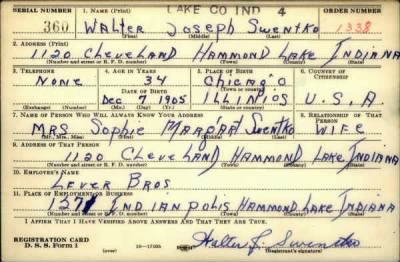 LAKE CO IND 4
SERIAL NUMBER 1. NAME (Print) ORDER NUMBER
360 WALTER JOSEPH SWENTKO 1338
(First) (Middle) (Last)
2. ADDRESS (Print)
1120 CLEVELAND HAMMOND LAKE INDIANA
(Number and street or R. F. D. number) (Town) (County) (State)
3. TELEPHONE 4. AGE IN YEARS 5. PLACE OF BIRTH 6. COUNTRY OF CITIZENSHIP
NONE 34 Chicago
DATE OF BIRTH (Town or county)
Dec 7 1905 ILLINIOS U.S.A.
(Exchange) (Number) (Mo.) (Day) (Yr.) (State or country)
7. NAME OF PERSON WHO WILL ALWAYS KNOW YOUR ADDRESS 8. RELATIONSHIP OF THAT PERSON
MRS Sophie MARgARt SwentKo WIFE
(Mr., Mrs., Miss) (First) (Middle) (Last)
9. ADDRESS OF THAT PERSON
1120 CLEVELAND HAMMOND LAKE INDIANA
(Number and street or R. F. D. number) (Town) (County) (State)
10. EMPLOYER'S NAME
LEVER BROS
11. PLACE OF EMPLOYMENT OR BUSINESS
1271 INDIANPOLIS HAMMOND LAKE INDIANA
(Number and street or R. F. D. number) (Town) (County) (State)
I AFFIRM THAT I HAVE VERIFIED ABOVE ANSWERS AND THAT THEY ARE TRUE.
REGISTRATION CARD
D. S. S. Form 1 16—17105 Walter J. Swentko
(Registrant's signature)